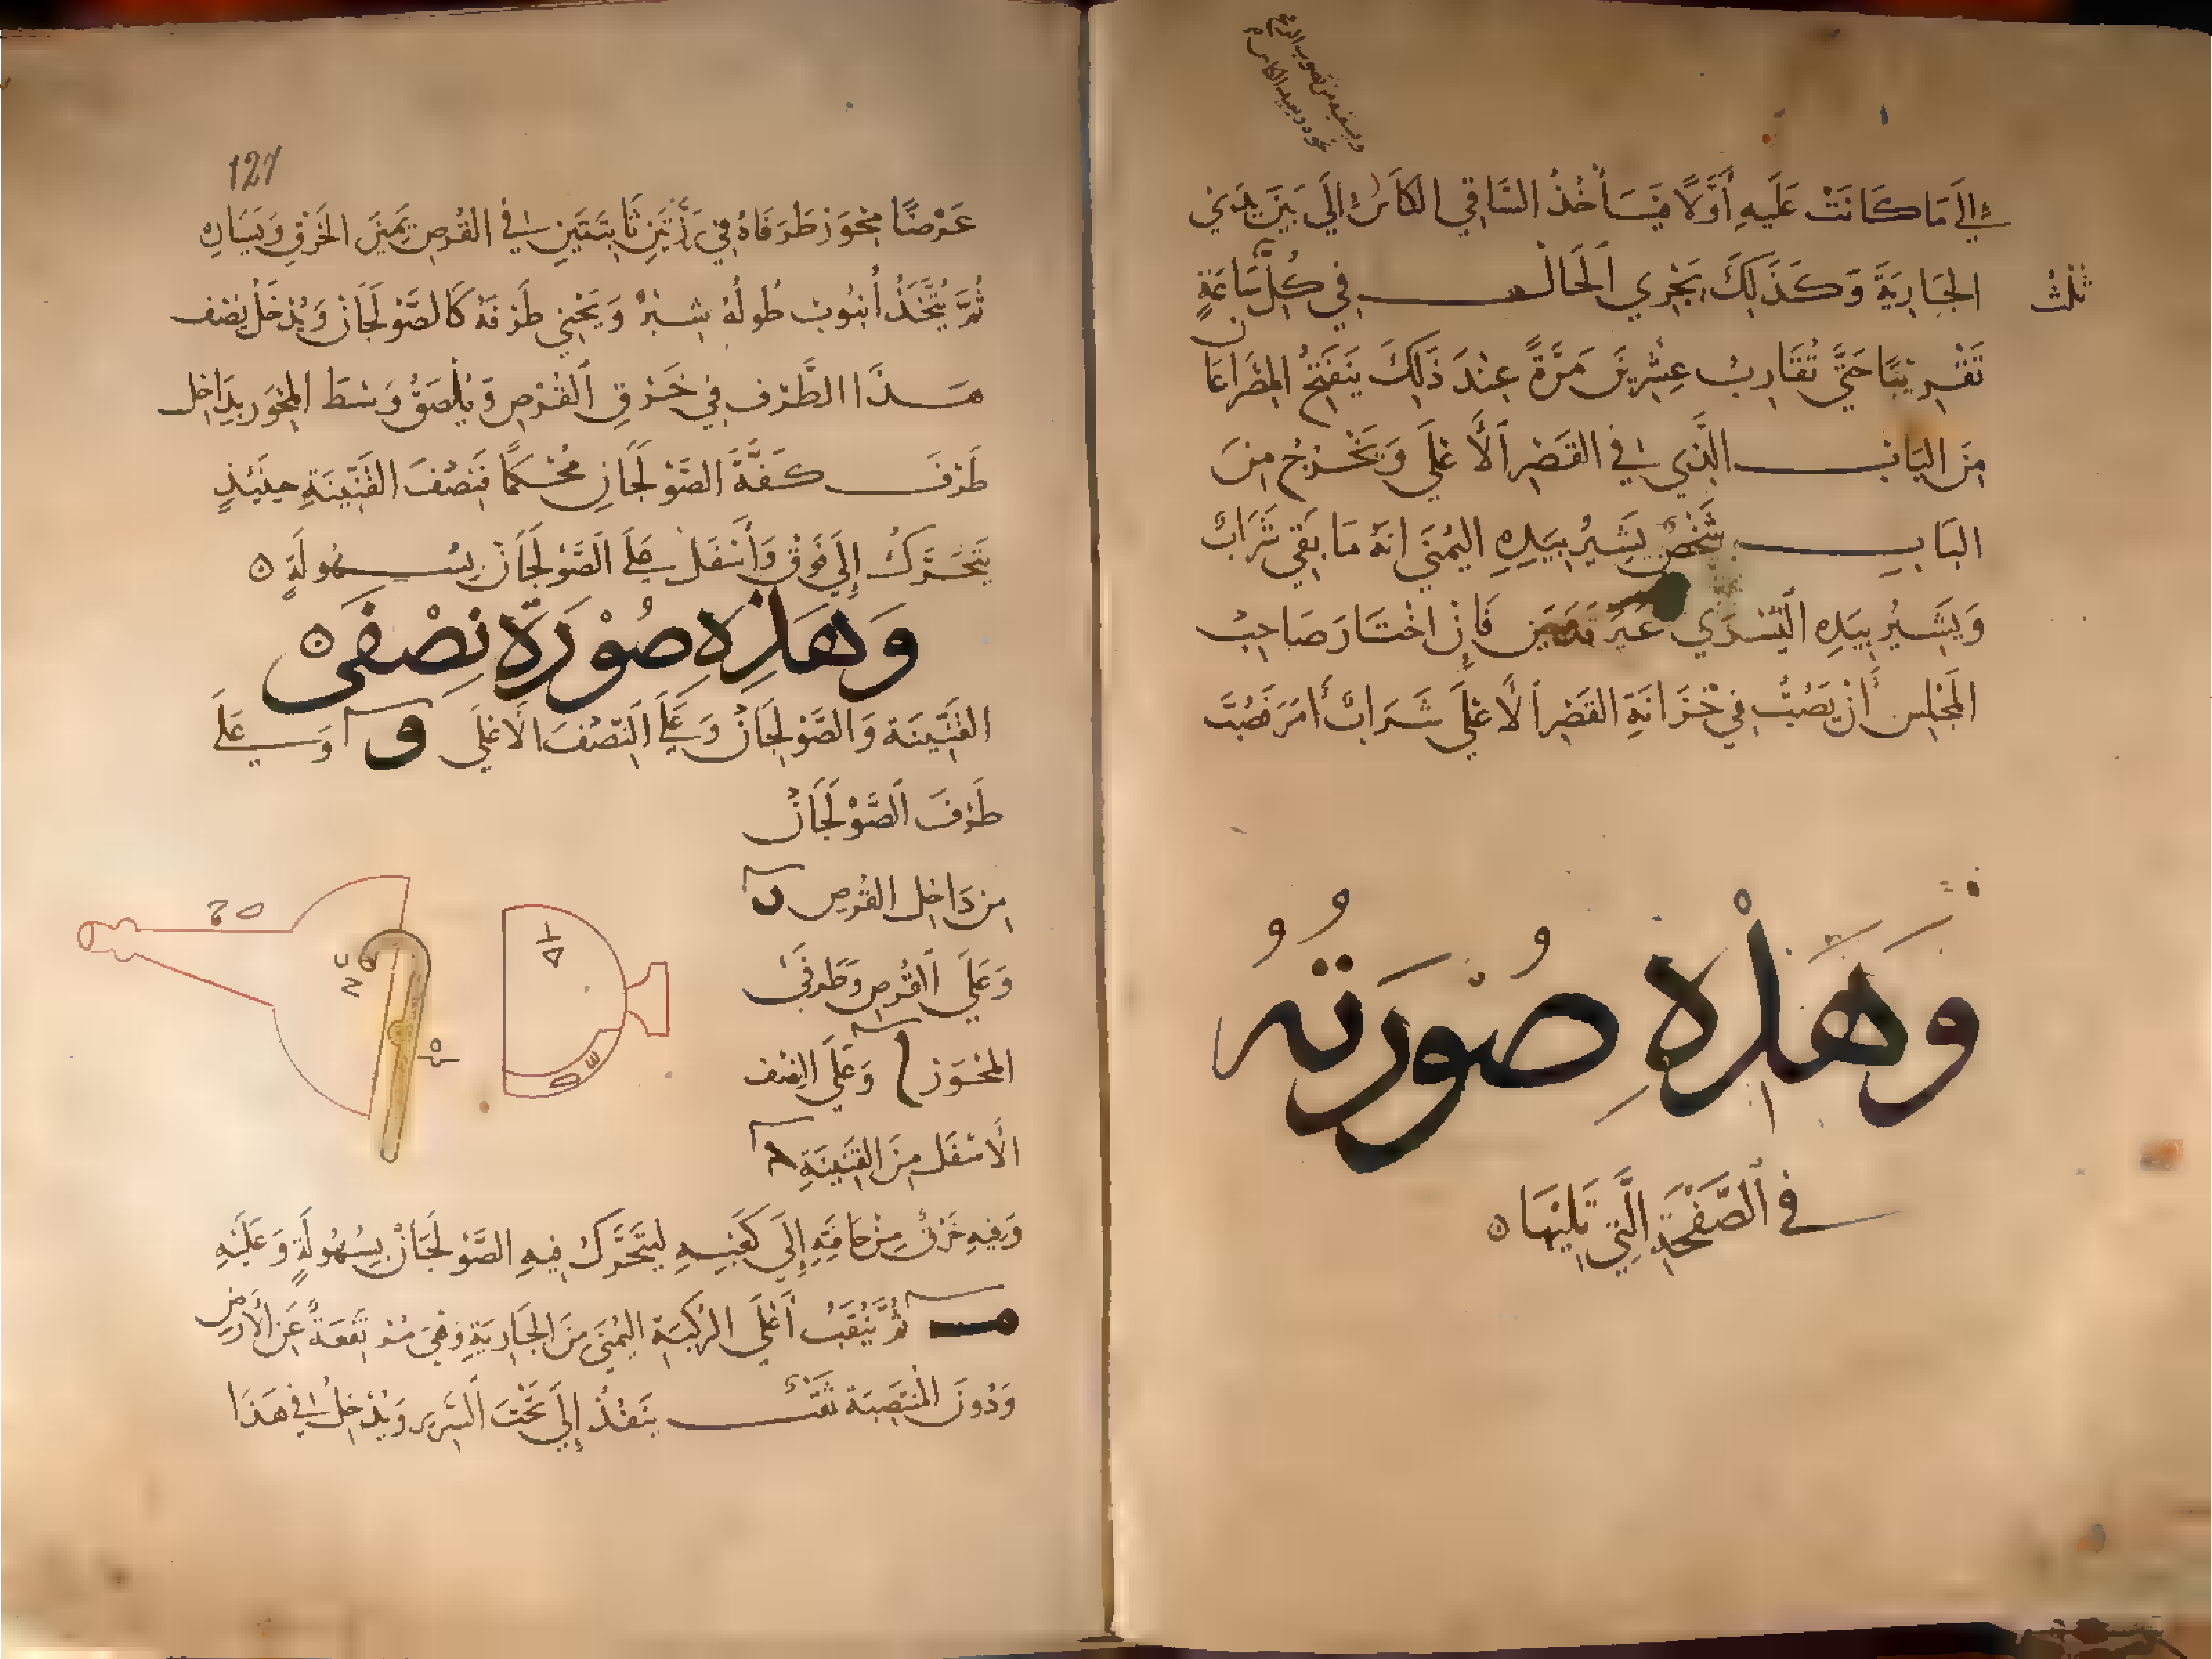 إلى ما كانت عليه أولا فيأخذ الساقي الكأس إلى بين يدي
ثلث
الجارية وكذلك يجري الحال في كل ساعة
تقريبا حتى تقارب عشرين مرة عند ذلك ينفتح المصراعان
من الباب الذي في القصر الأعلى ويخرج من
الباب شخص يشير بيده اليمنى انه ما بقي شراب
ويشير بيده اليسرى غير قدحين فإن اختار صاحب
المجلس أن يصب في خزانة القصر الأعلى شراب أمر فصب
وهذه صورته
في الصفحة التي تليها ه
127
عرضا محور طرفاه في رزتين ثابتتين في القرص يمين الخرق ويساره
ثم يتخذ أنبوب طوله شبر ويحنى طرفه كالصولجان ويدخل نصف
هذا الطرف في خرق القرص ويلصق وسط المحور بداخل
طرف كفة الصولجان محكما فنصف القنينة حينئذ
يتحرك إلى فوق وأسفل على الصولجان بسهولة ه
وهذه صورة نصفي ه
القنينة والصولجان وعلى النصف الأعلى و وعلى
طرف الصولجان
من داخل القرص ں
وعلى القرص وطرفي
المحور وعلى النصف
الأسفل من القنينة
وفيه خرق من حافته إلى كعبه ليتحرك فيه الصولجان بسهولة وعليه
ثم ينقب أعلى الركبة اليمنى من الجارية وهي مرتفعة عن الأرض
ودون المنتصبة نقب ينفذ إلى تحت السرير ويدخل في هذا